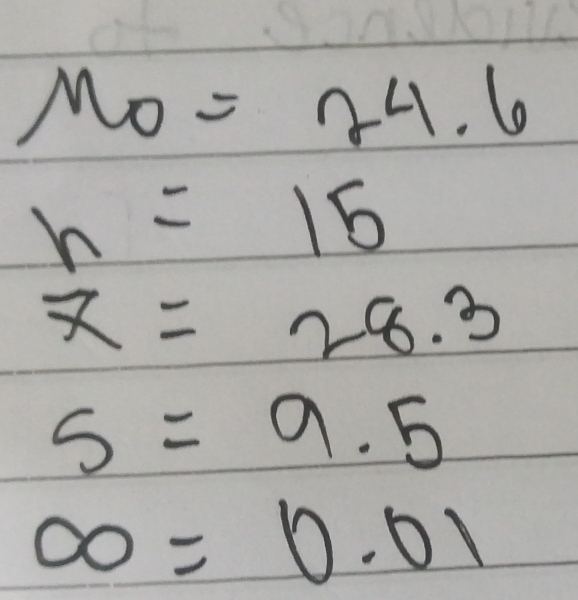 Mo = 24.6
n = 15
x̄ = 28.3
s = 9.5
∞ = 0.01